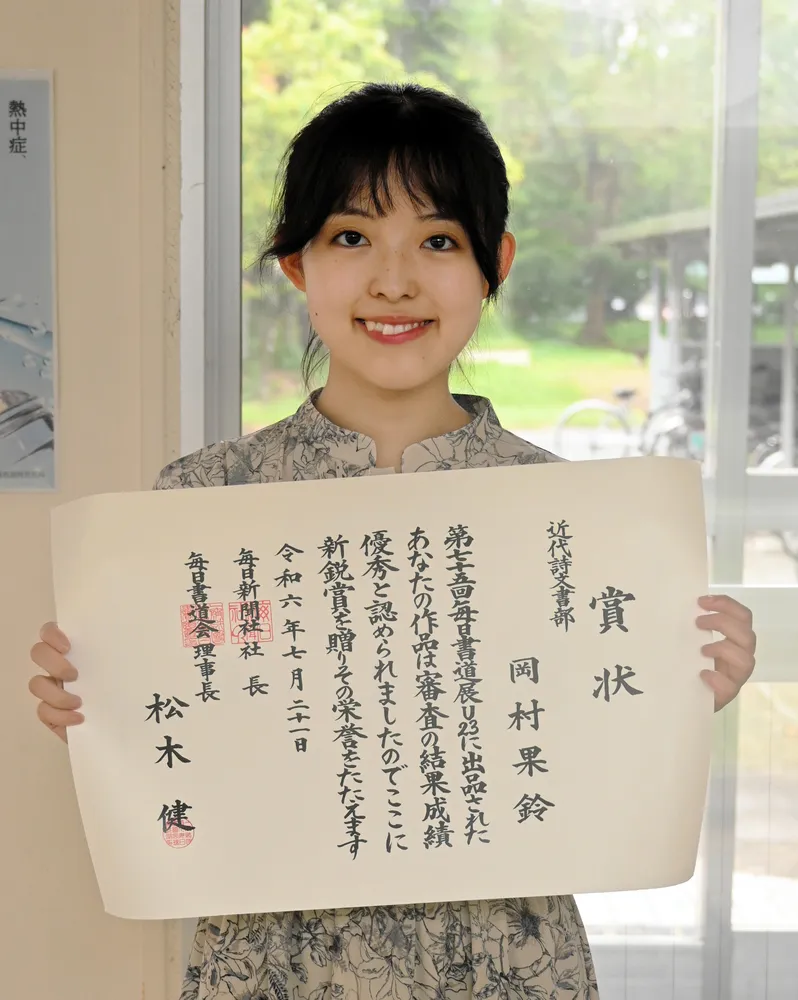 賞状
近代詩文書部
岡村果鈴
第七十五回毎日書道展U23に出品された
あなたの作品は審査の結果成績
優秀と認められましたのでここに
新鋭賞を贈りその栄誉をたたえます
令和六年七月二十一日
毎日新聞社社長
毎日書道会理事長
松木健
熱中症、